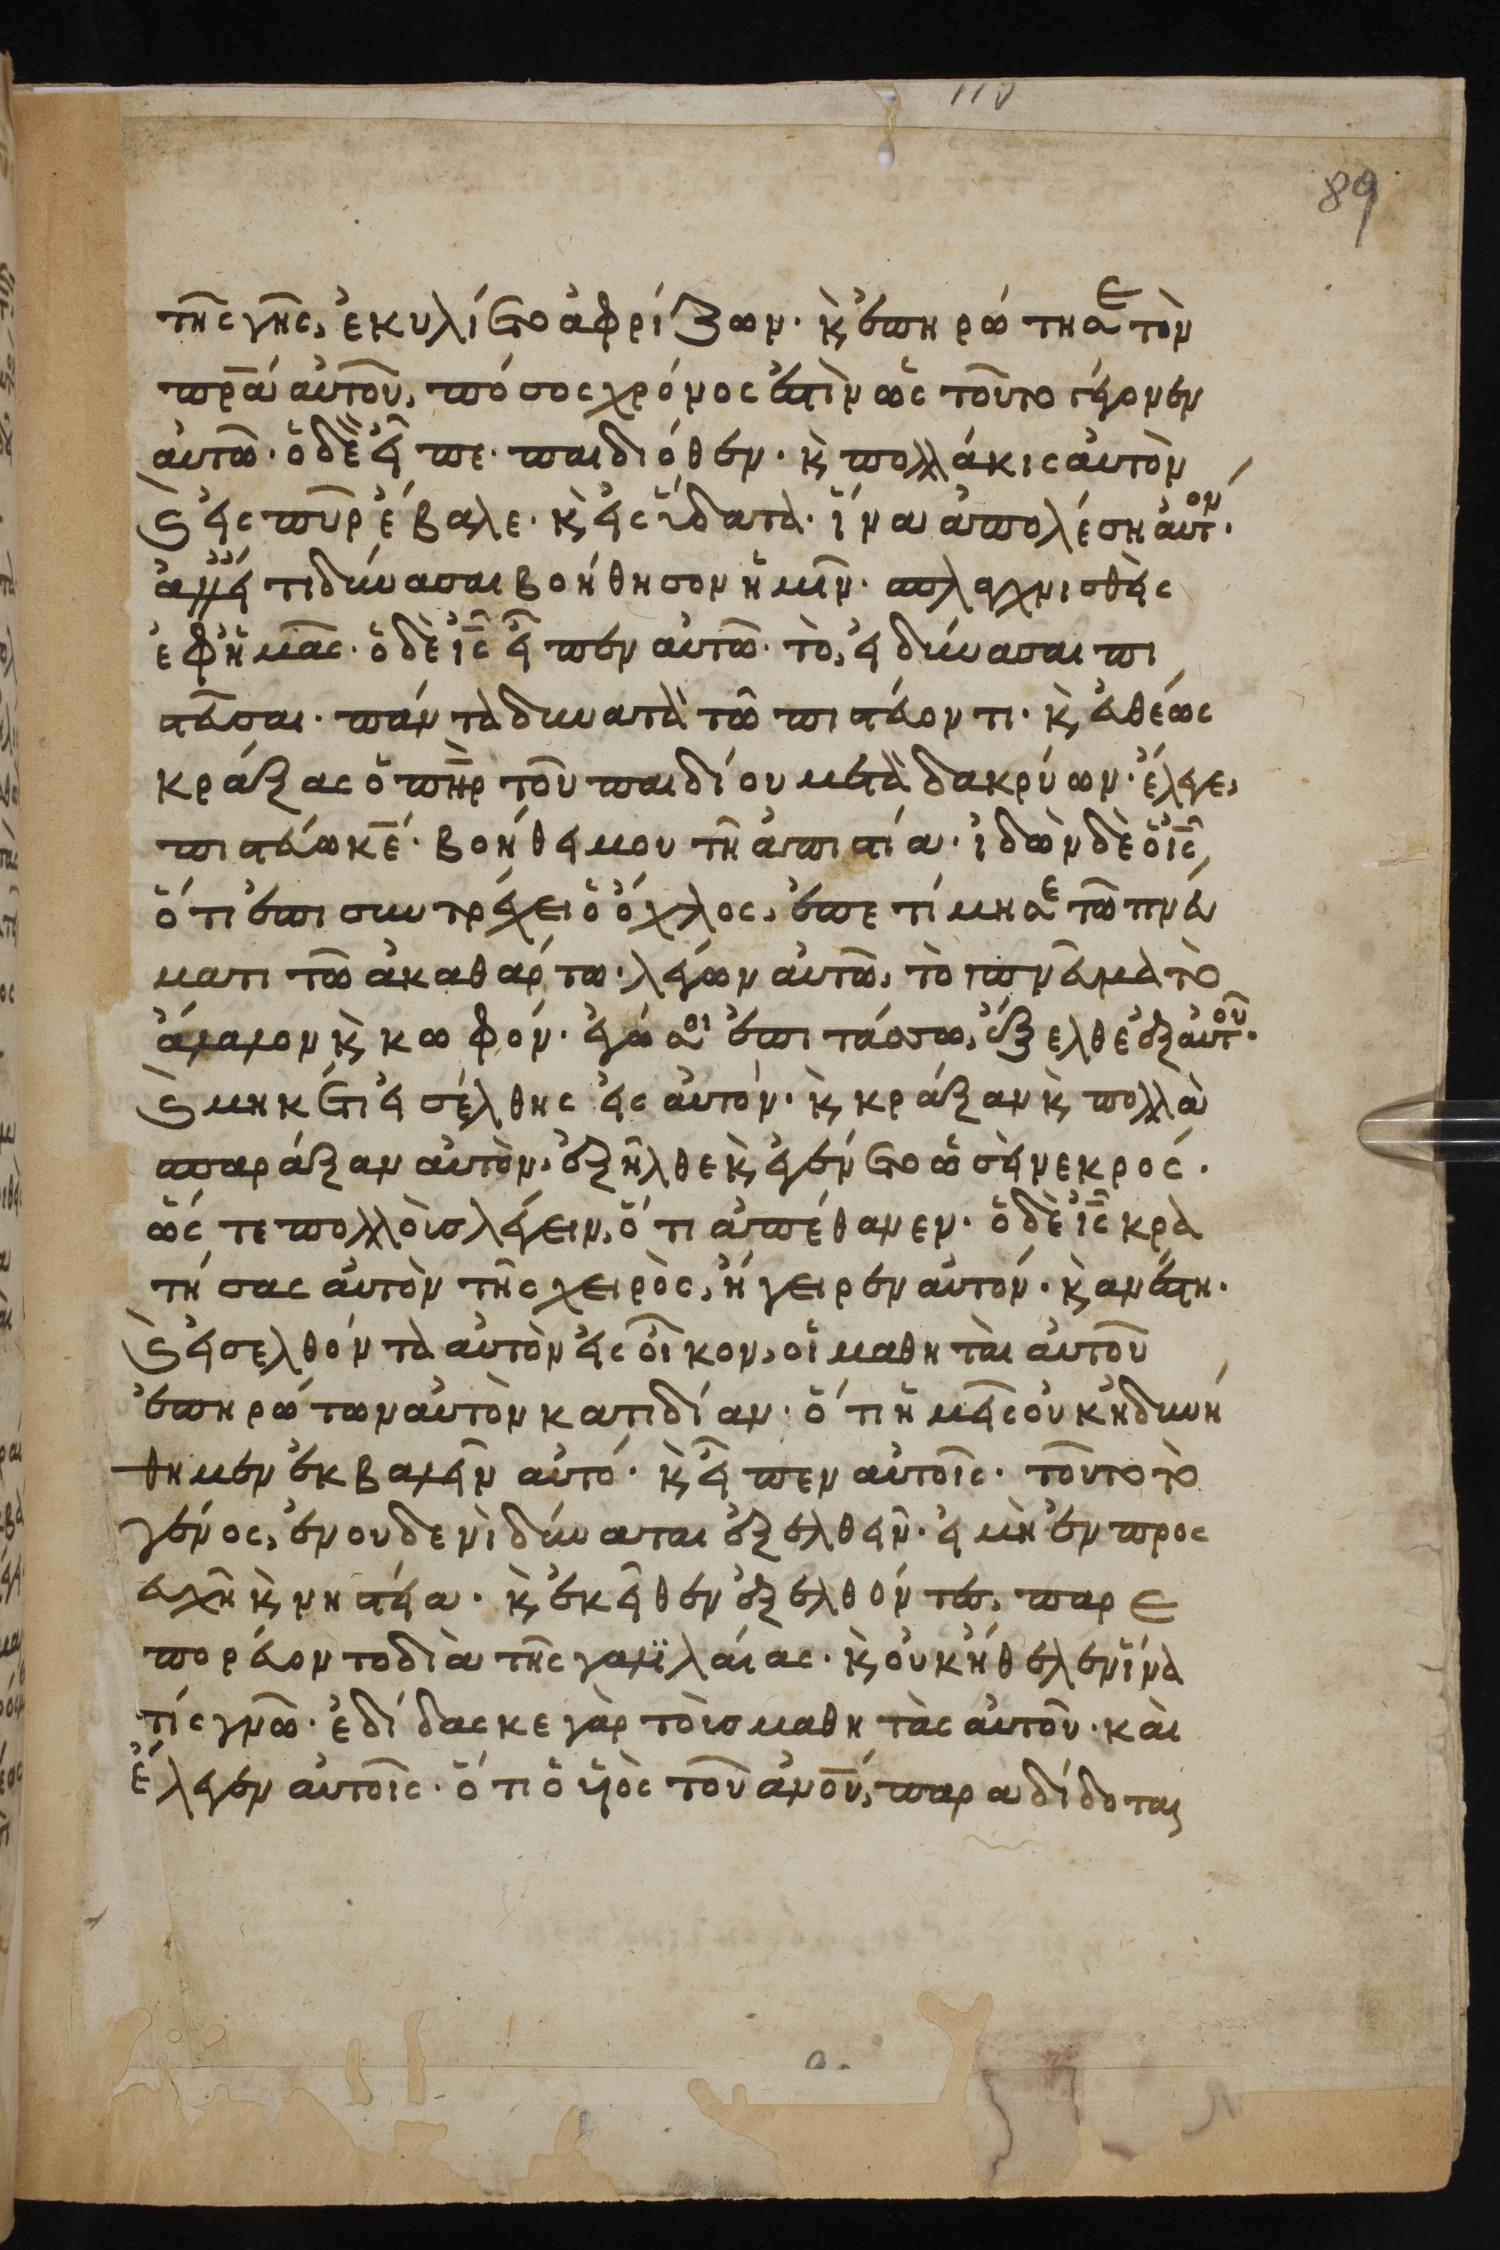 89
τῆς γῆς, ἐκυλίετο ἀφρίζων· κ̀ ἐπηρώτησε τὸν
πρ̅α αὐτοῦ, πόσος χρόνος ἐστὶν ὡς τοῦτο γέγονεν
αὐτῶ· ὁ δὲ εἶπε· παιδιόθεν· κ̀ πολλάκις αὐτὸν
κ̀ εἰς πῦρ ἔβαλε· κ̀ εἰς ὕδατα· ἵνα ἀπολέση αὐτον·
ἀλλ εἴ τι δύνασαι βοήθησον ἡμῖν· σπλαχνισθεὶς
ἐφ ἡμᾶς· ὁ δὲ ι̅ς̅ εἶπεν αὐτῶ· τὸ, εἰ δύνασαι πι
στεῦσαι· πάντα δυνατὰ τῶ πιστεύοντι· κ̀ εὐθέως
κράξας ὁ π̅η̅ρ τοῦ παιδίου μετὰ δακρύων· ἔλεγε,
πιστεύω κ̅ε· βοήθει μου τῆ ἀπιστία· ἰδὼν δὲ ὁ ι̅ς̅
ὅτι ἐπισυντρέχει ὁ ὄχλος, ἐπετίμησε τῶ πνεύ
ματι τῶ ἀκαθάρτω· λέγων αὐτῶ, τὸ πνεῦμα τὸ
ἄλαλον κ̀ κωφόν· ἐγώ σοι ἐπιτάσσω, ἔξελθε ἐξ αὐτοῦ·
κ̀ μηκέτι εἰσέλθης εἰς αὐτόν· κ̀ κράξαν κ̀ πολλὰ
σπαράξαν αὐτὸν, ἐξῆλθε κ̀ ἐγένετο ὡσεὶ νεκρός·
ὥστε πολλοὺς λέγειν, ὅτι ἀπέθανεν· ὁ δὲ ι̅ς̅ κρα
τήσας αὐτὸν τῆς χειρὸς, ἤγειρεν αὐτόν· κ̀ ἀνέστη·
κ̀ εἰσελθόντα αὐτὸν εἰς οἶκον, οἱ μαθηταὶ αὐτοῦ
ἐπηρώτων αὐτὸν κατιδίαν· ὅτι ἡμεῖς οὐκ ἠδυνή
θημεν ἐκβαλεῖν αὐτό· κ̀ εἶπεν αὐτοῖς· τοῦτο τὸ
γένος, ἐν ουδενὶ δύναται ἐξελθεῖν· εἰ μὴ ἐν προς
ευχῆ κ̀ νηστεία· κ̀ ἐκεῖθεν ἐξελθόντες, παρε
πορεύοντο διὰ τῆς γαλιλαίας· κ̀ οὐκ ἤθελεν ἵνα
τίς γνῶ· ἐδίδασκε γὰρ τοὺς μαθητὰς αὐτοῦ· καὶ
ἔλεγεν αὐτοῖς· ὅτι ὁ υἱὸς τοῦ ἀνο̅υ, παραδίδοται
α.